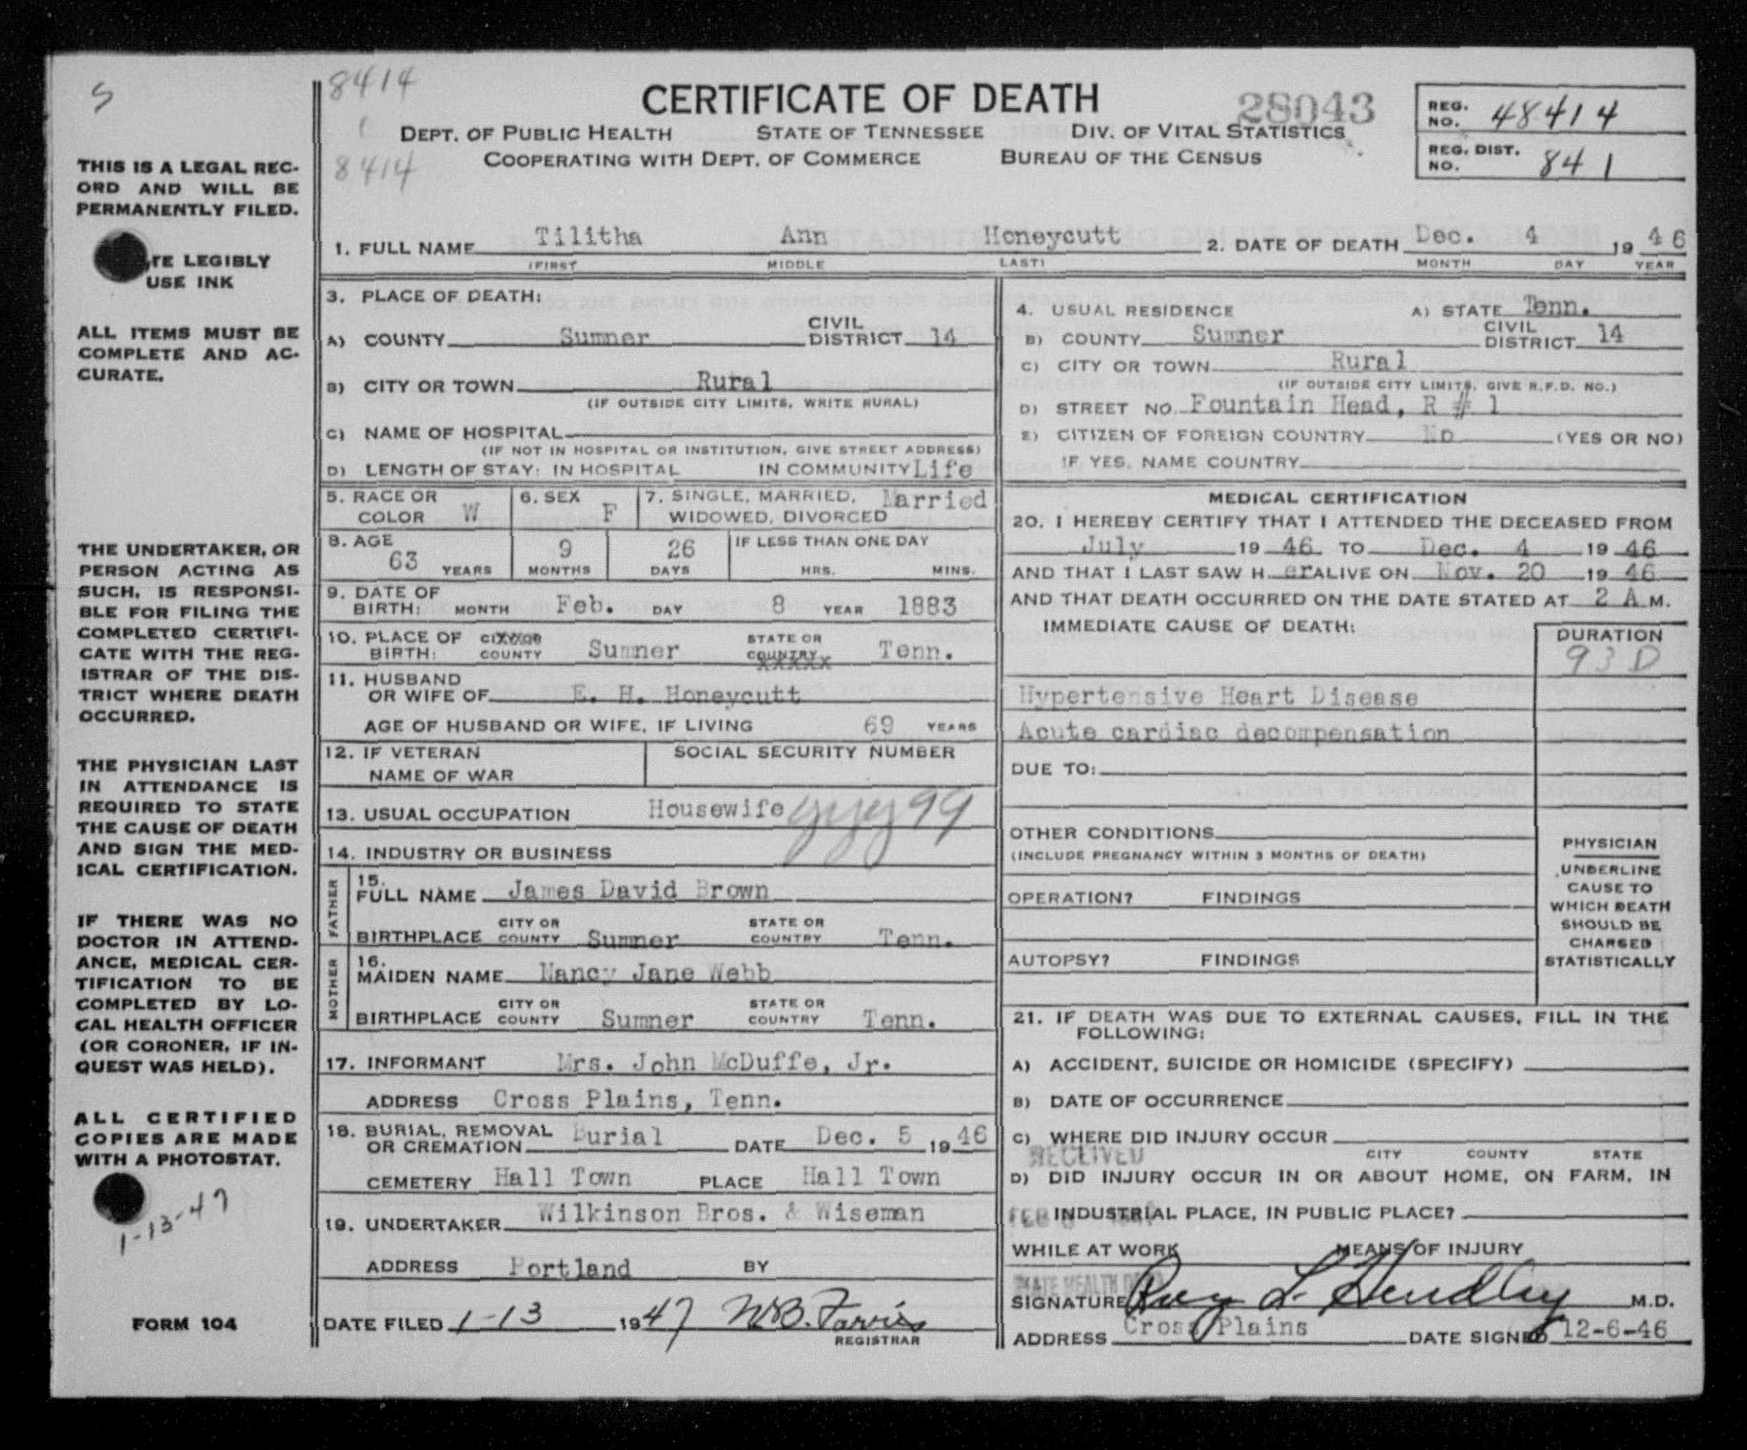 S
THIS IS A LEGAL REC-
ORD AND WILL BE
PERMANENTLY FILED.
TE LEGIBLY
USE INK
ALL ITEMS MUST BE
COMPLETE AND AC-
CURATE.
THE UNDERTAKER, OR
PERSON ACTING AS
SUCH, IS RESPONSI-
BLE FOR FILING THE
COMPLETED CERTIFI-
CATE WITH THE REG-
ISTRAR OF THE DIS-
TRICT WHERE DEATH
OCCURRED.
THE PHYSICIAN LAST
IN ATTENDANCE IS
REQUIRED TO STATE
THE CAUSE OF DEATH
AND SIGN THE MED-
ICAL CERTIFICATION.
IF THERE WAS NO
DOCTOR IN ATTEND-
ANCE, MEDICAL CER-
TIFICATION TO BE
COMPLETED BY LO-
CAL HEALTH OFFICER
(OR CORONER, IF IN-
QUEST WAS HELD).
ALL CERTIFIED
COPIES ARE MADE
WITH A PHOTOSTAT.
1-13-47
FORM 104
8414
8414
CERTIFICATE OF DEATH
28043
DEPT. OF PUBLIC HEALTH STATE OF TENNESSEE DIV. OF VITAL STATISTICS
COOPERATING WITH DEPT. OF COMMERCE BUREAU OF THE CENSUS
REG. NO. 48414
REG. DIST. NO. 841
1. FULL NAME Tilitha Ann Honeycutt 2. DATE OF DEATH Dec. 4 19 46
(FIRST MIDDLE LAST) MONTH DAY YEAR
3. PLACE OF DEATH:
A) COUNTY Sumner CIVIL DISTRICT 14
B) CITY OR TOWN Rural
(IF OUTSIDE CITY LIMITS, WRITE RURAL)
C) NAME OF HOSPITAL
(IF NOT IN HOSPITAL OR INSTITUTION, GIVE STREET ADDRESS)
D) LENGTH OF STAY: IN HOSPITAL IN COMMUNITY Life
5. RACE OR COLOR W 6. SEX F 7. SINGLE, MARRIED, WIDOWED, DIVORCED Married
8. AGE 63 YEARS 9 MONTHS 26 DAYS IF LESS THAN ONE DAY HRS. MINS.
9. DATE OF BIRTH: MONTH Feb. DAY 8 YEAR 1883
10. PLACE OF BIRTH: CITY OR COUNTY Sumner STATE OR COUNTRY Tenn.
11. HUSBAND OR WIFE OF E. H. Honeycutt
AGE OF HUSBAND OR WIFE, IF LIVING 69 YEARS
12. IF VETERAN NAME OF WAR SOCIAL SECURITY NUMBER
13. USUAL OCCUPATION Housewife yyy99
14. INDUSTRY OR BUSINESS
FATHER
15. FULL NAME James David Brown
BIRTHPLACE CITY OR COUNTY Sumner STATE OR COUNTRY Tenn.
MOTHER
16. MAIDEN NAME Nancy Jane Webb
BIRTHPLACE CITY OR COUNTY Sumner STATE OR COUNTRY Tenn.
17. INFORMANT Mrs. John McDuffe, Jr.
ADDRESS Cross Plains, Tenn.
18. BURIAL, REMOVAL OR CREMATION Burial DATE Dec. 5 19 46
CEMETERY Hall Town PLACE Hall Town
19. UNDERTAKER Wilkinson Bros. & Wiseman
ADDRESS Portland BY
DATE FILED 1-13 1947
REGISTRAR
4. USUAL RESIDENCE A) STATE Tenn.
B) COUNTY Sumner CIVIL DISTRICT 14
C) CITY OR TOWN Rural
(IF OUTSIDE CITY LIMITS, GIVE R.F.D. NO.)
D) STREET NO. Fountain Head, R # 1
E) CITIZEN OF FOREIGN COUNTRY No (YES OR NO)
IF YES, NAME COUNTRY
MEDICAL CERTIFICATION
20. I HEREBY CERTIFY THAT I ATTENDED THE DECEASED FROM
July 19 46 TO Dec. 4 19 46
AND THAT I LAST SAW H er ALIVE ON Nov. 20 19 46
AND THAT DEATH OCCURRED ON THE DATE STATED AT 2 A M.
IMMEDIATE CAUSE OF DEATH: DURATION
93D
Hypertensive Heart Disease
Acute cardiac decompensation
DUE TO:
OTHER CONDITIONS
(INCLUDE PREGNANCY WITHIN 3 MONTHS OF DEATH)
OPERATION? FINDINGS
AUTOPSY? FINDINGS
PHYSICIAN
UNDERLINE
CAUSE TO
WHICH DEATH
SHOULD BE
CHARGED
STATISTICALLY
21. IF DEATH WAS DUE TO EXTERNAL CAUSES, FILL IN THE
FOLLOWING:
A) ACCIDENT, SUICIDE OR HOMICIDE (SPECIFY)
B) DATE OF OCCURRENCE
C) WHERE DID INJURY OCCUR
RECEIVED CITY COUNTY STATE
D) DID INJURY OCCUR IN OR ABOUT HOME, ON FARM, IN
FEB INDUSTRIAL PLACE, IN PUBLIC PLACE?
WHILE AT WORK MEANS OF INJURY
STATE HEALTH DEPT
SIGNATURE Roy L. Hendley M.D.
ADDRESS Cross Plains DATE SIGNED 12-6-46